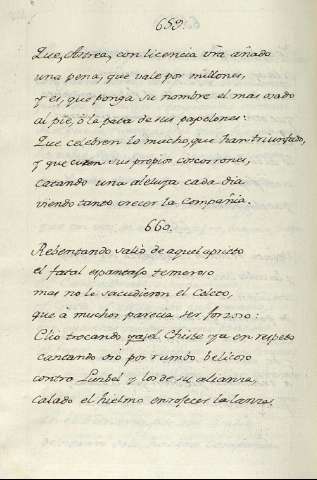 659.
Que, Astrea, con licencia vrā añado
una pena, que vale por millones,
y es, que ponga su nombre el mas osado
al pie, ò la pata de sus papelones:
Que celebren lo mucho, que han triunfado,
y que curen sus propios coscorrones,
cantando una aleluya cada dia
viendo tanto crecer la Compañia.
660.
Rebentando saliò de aquel aprieto
el fatal espantajo temeroso
mas no le sacudieron el Coleto,
que à muchos parecia ser forzoso:
Clio trocando ya el Chiste ya en respeto
cantando oiò por rumbo belicoso
contra Luzbel y los de su alianza,
calado el hielmo enrojecer la lanza.